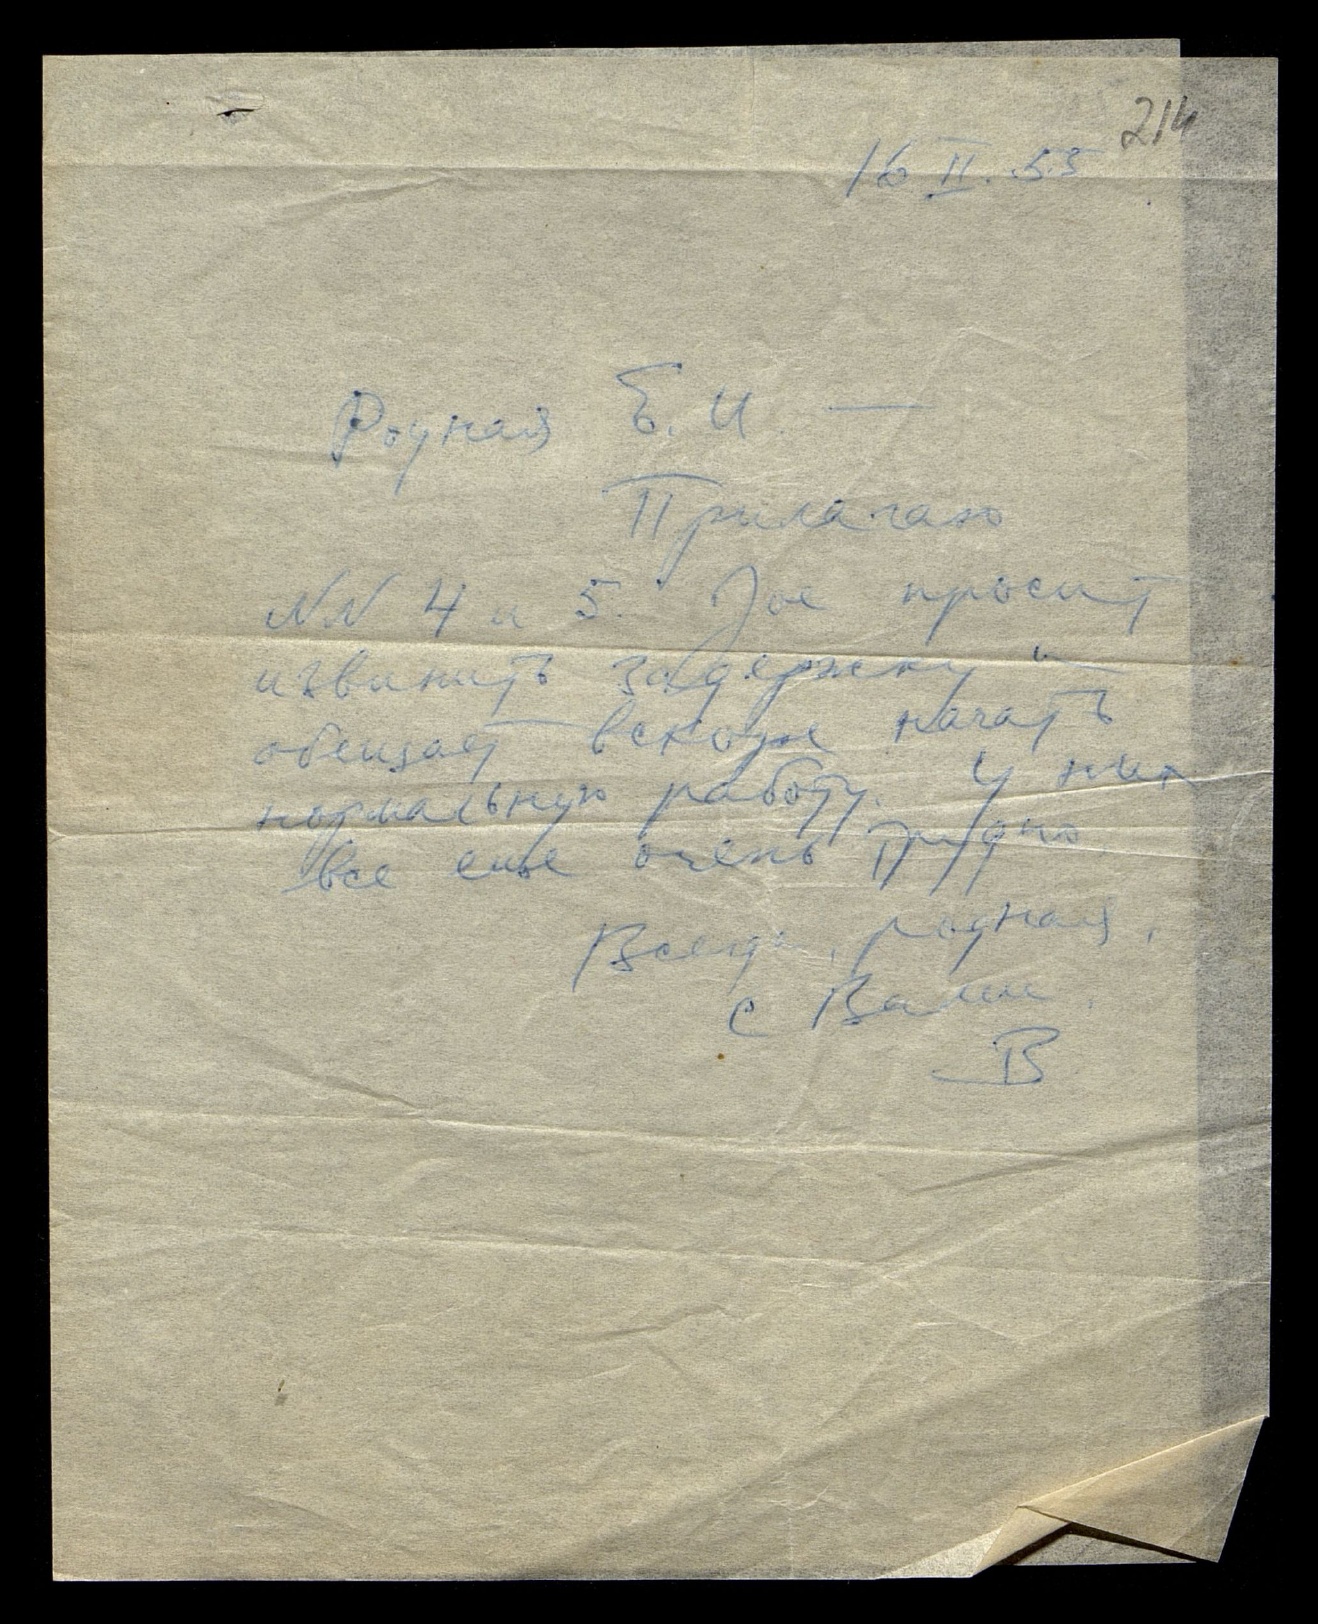 214
16 II. 53
Родная Е. И. —
Прилагаю
NN 4 и 5. просит
извинить задержку и
обещает вскоре начать
нормальную работу. У них
все еще очень трудно
Всегда, родная,
с Вами.
В